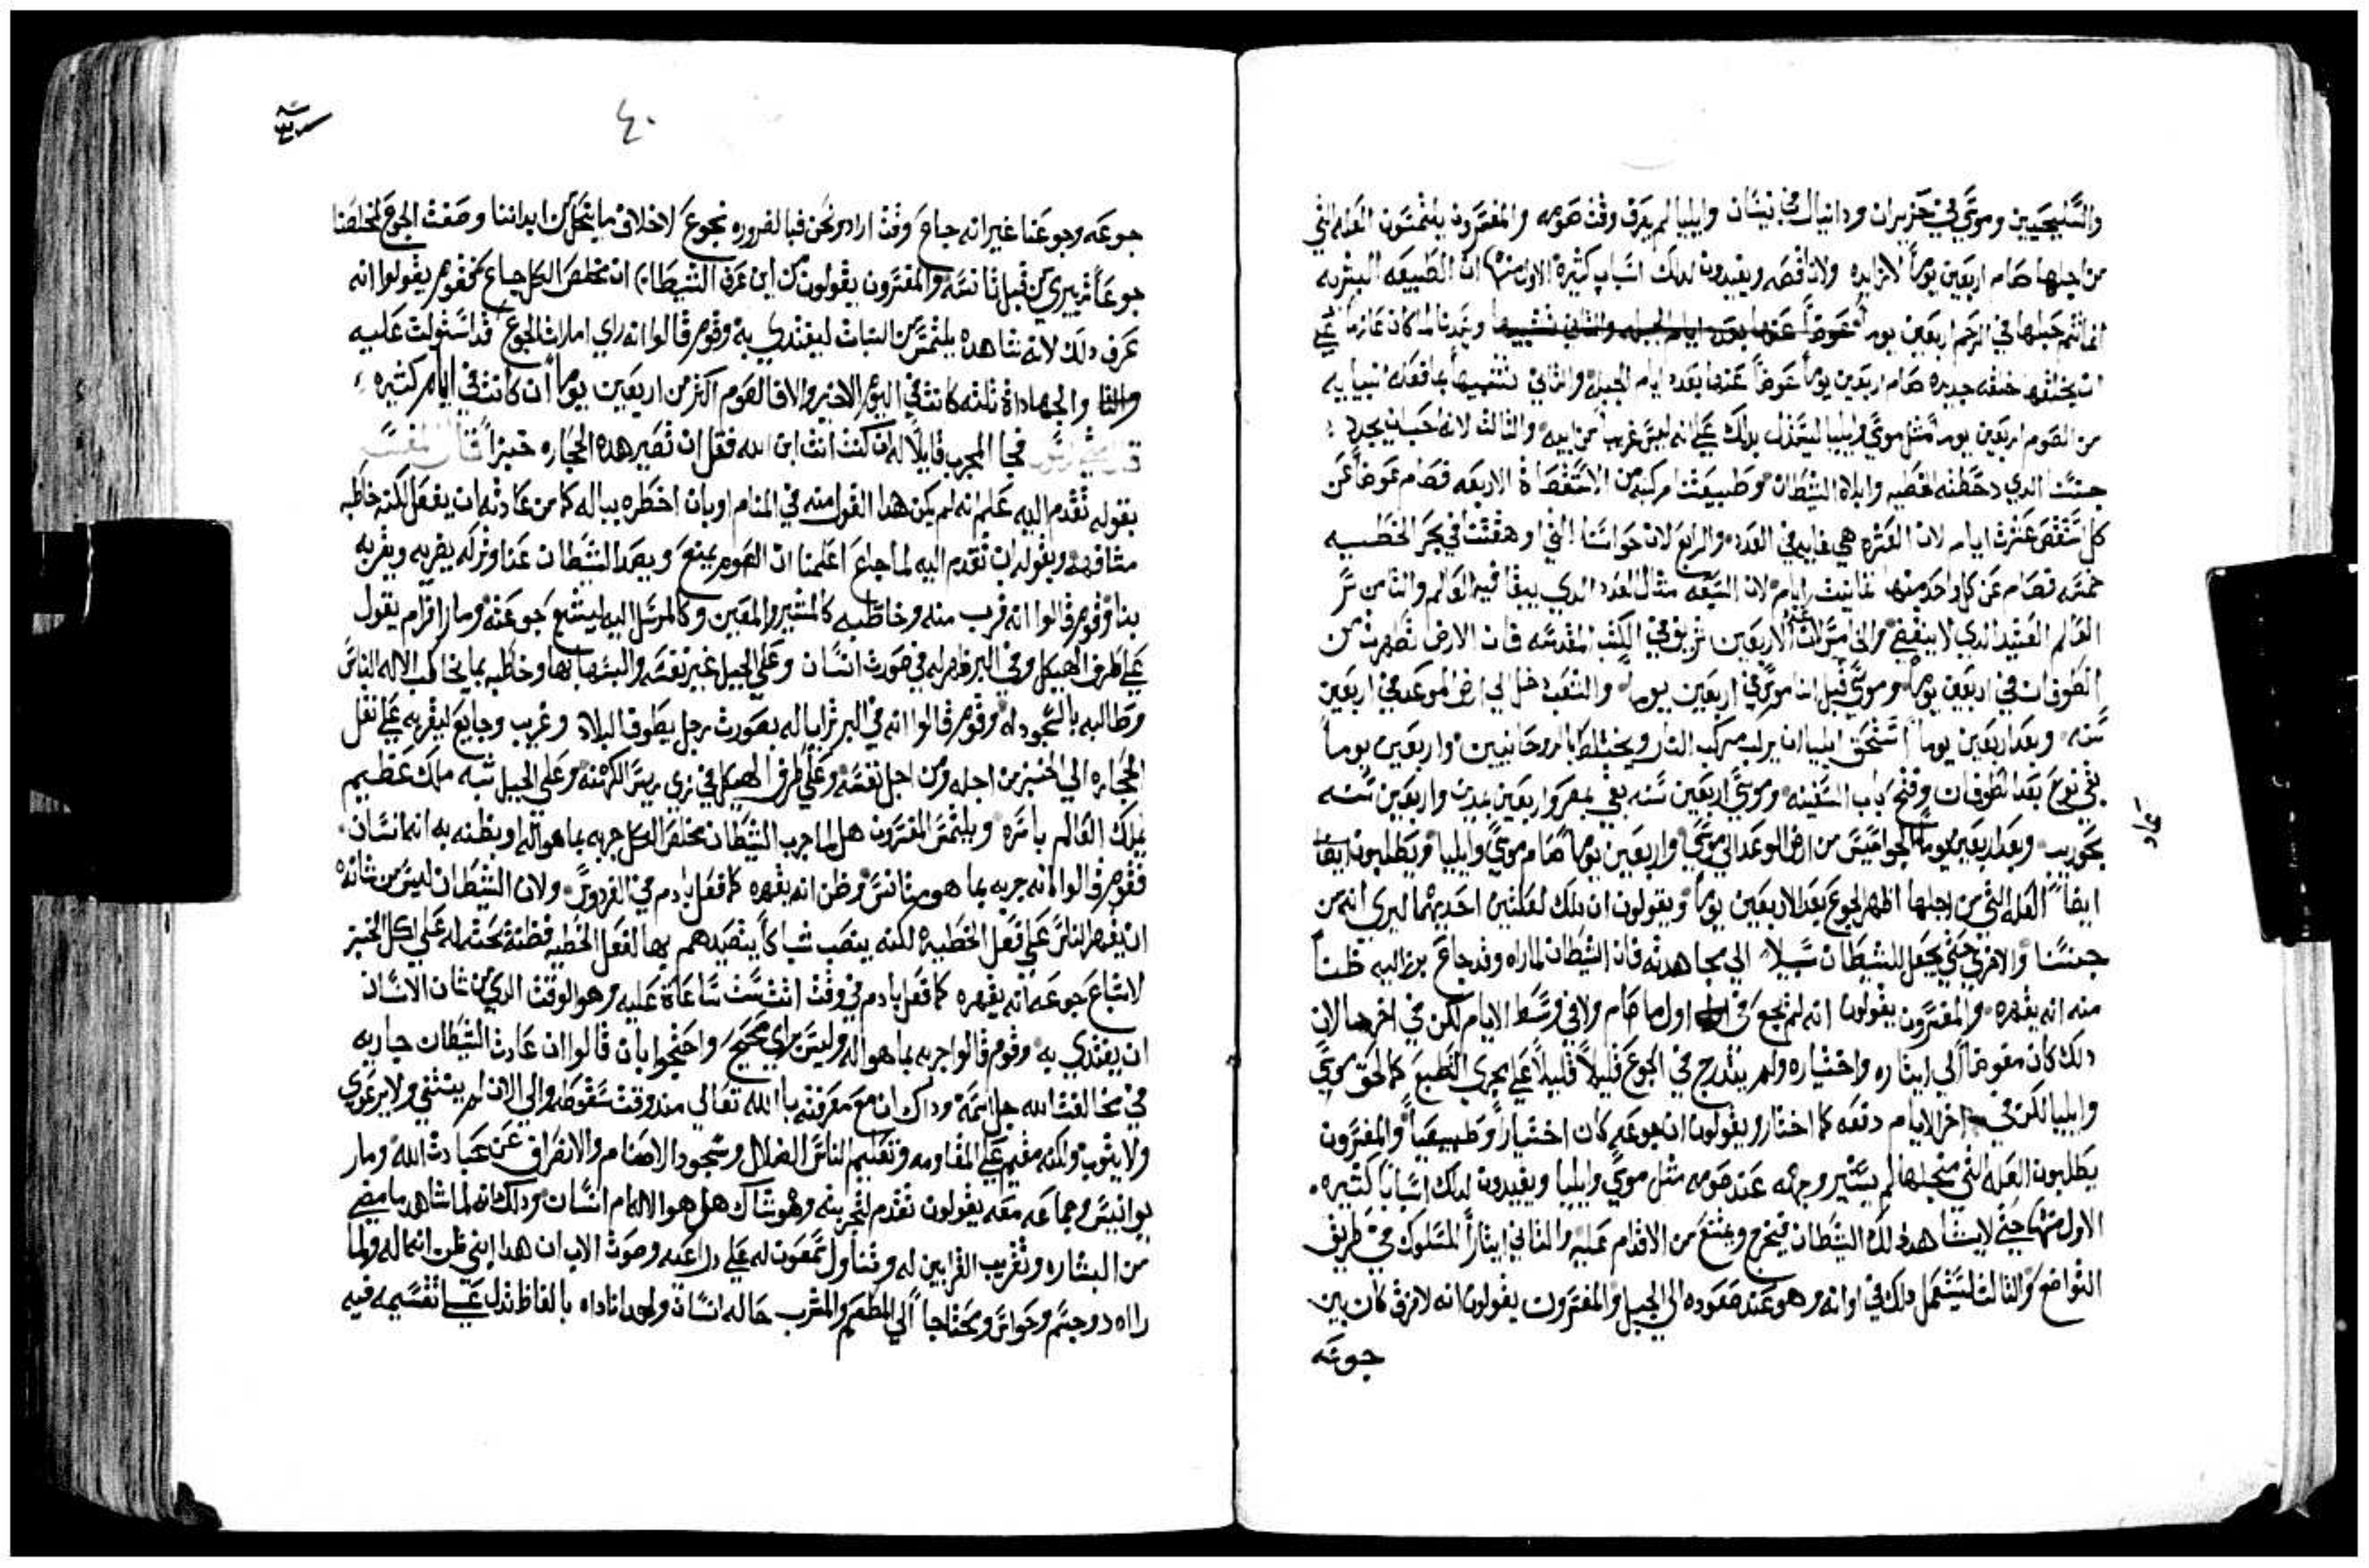 والسليحيين وموسى في حزيران ودانيال في نيسان وايليا لم يعرف وقت صومه والمفسرون يلتمسون العله التي
من اجلها صام اربعين يوماً لا زايده ولا ناقصه ويفيدون لدلك اسباب كثيره الاول منها ان الطبيعه البشريه
انما تتم جبلها في الرحم اربعين يوما عوضاً عنها بعدد ايام الجبله والثاني وسيدنا لما كان عازماً علي
ان يخلقها خلقه جديده صام اربعين يوماً عوضاً عنها بعدد ايام الجبله والثاني بما فعله انبيايه
من الصوم اربعين يوماً مثل موسى وايليا ليستدل بدلك علي انه ليس غريباً من ابيه والثالث لانه احب ان يجدد
جنسنا الدي دحضته الخطيه وابلاه الشيطان وطبيعتنا مركبه من الاستقصاة الاربعه فصام عوضاً عن
كل ستقص عشرت ايام لان العشره هي غايه في العدد والرابع لان حواسنا التي في بحر الخطيه
خمسه فصام عن كل واحد منها ثمانيت ايام لان السبعه مثال العدد الدي يبقا فيه العالم والثامن سر
العالم العتيد الدي لا ينقضي الاربعين في الكتب المقدسه فان الارض تطهرت من
الطوفان في اربعين يوماً وموسى قبل الناموس في اربعين يوماً والشعب دخل الي ارض الموعد في اربعين
سنه وبعد اربعين يوماً استحق ايليا ان يركب مركب النار ويختلط بالروحانيين واربعين يوماً
بقي نوح بعد الطوفان وفتح باب السفينه وموسى اربعين سنه بقي بمصر واربعين بمدين واربعين سنه
بحوريب وبعد اربعين يوماً الجواسيس من ارض الوعد الي موسى واربعين يوماً صام موسى وايليا ويطلبون ايضاً
عاد
ايضاً العله التي من اجلها اظهر الجوع بعد الاربعين يوماً ويقولون ان دلك لعلتين احديهما ليري انه من
جنسنا والاخري حتي يجعل للشيطان سبيلاً الي مجاهدته فان الشيطان لما راه وقد جاع برز اليه ظناً
منه انه يقهره والمفسرون يقولون انه لم يجع في اول ما صام ولا في وسط الايام لكن في اخرها لان
دلك كان مفوضاً الي ايثاره واختياره ولم يتدرج في الجوع قليلاً قليلاً علي مجري الطبع كما لحق موسى
وايليا لكن في اخر الايام دفعه كما اختار ويقولون ان جوعه كان اختياراً وطبيعياً والمفسرون
يطلبون العله التي من اجلها لم يستنير وجهه عند صومه مثل موسى وايليا ويفيدون لدلك اسباباً كثيره
الاول منها حتي لا يشاهد دلك الشيطان فيتحرج ويمتنع من الاقدام عليه والثاني ايثاراً للسلوك في طريق
التواضع والثالث ليستعمل دلك في اوانه وهو عند صعوده الي الجبل والمفسرون يقولون انه لا فرق كان بين
جوعه
٤٠
جوعه وجوعنا غير انه جاع وقت اراد ونحن فبالضروره نجوع لاخلاف ما ينحل من ابداننا وصفت الجوع لمخلصنا
جوعاً من قبل ناسته والمفسرون يقولون من اين عرف الشيطان ان مخلص الكل جاع فقوم يقولوا انه
عرف دلك لانه شاهده يلتمس من النبات ليغتدي به وقوم قالوا انه راي امارات الجوع قد استولت عليه
والجهاداة ثلثه كانت في اليوم الاخير والا فالصوم اكثر من اربعين يوماً ان كانت في ايام كثيره
فجا المجرب قايلاً له ان كنت انت ابن الله فقل ان تصير هده الحجاره خبزاً قال المفسر
بقوله تقدم اليه علم انه لم يكن هدا القول منه في المنام او بان اخطره بباله كما من عادته ان يفعل لكنه خاطبه
مشافهة وبقوله ان تقدم اليه لما جاع اعلمنا ان الصوم يمنع ويصد الشيطان عنا
وقوم قالوا انه قرب منه وخاطبه كالمشير والمعين وكالمرسل اليه ليشبع جوعته ومار افرام يقول
علي طرف الهيكل وفي البر ظهر له في صورت انسان وعلي الجبل غير نفسه وخاطبه بما يخاطب الاله الناس
وطالبه بالسجود له وقوم قالوا انه في البر ترايا له بصورت رجل يطوف البلاد وغريب وجايع ليغريه علي نقل
الحجاره الي الخبز من اجله ومن اجل نفسه وعلي طرف الهيكل في زي ريس الكهنه وعلي الجبل شبه ملك عظيم
يملك العالم باسره ويلتمس المفسرون هل لما جرب الشيطان مخلص الكل جربه بما هو اله او بظنه به انه انسان
فقوم قالوا انه جربه بما هو انسان وظن انه يقهره كما فعل بادم في الفردوس ولان الشيطان ليس من شانه
ان يقهر الناس علي فعل الخطيه لكنه ينصب شباكاً يتصيدهم بها لفعل الخطيه فظن بحته له علي اكل الخبز
لاشباع جوعه انه يقهره كما فعل بادم في وقت ست ساعاة عليه وهو الوقت الدي من شان الانسان
ان يغتدي به وقوم قالوا جربه بما هو اله وليس براي صحيح واحتجوا بان قالوا ان عادت الشيطان جاريه
في مخالفت الله جل اسمه وداك ان مع معرفته بالله تعالي مند وقت سقوطه والي الان لم ينتني ولا يرعوي
ولا يتوب ولكنه مقيم علي المقاومه وتعليم الناس الضلال وسجود الاصنام والانصراف عن عبادت الله ومار
يوانيس وجماعه معه يقولون تقدم لتجربته وهو شاك هل هو الاله ام انسان ودلك انه لما شاهد ما مضي
من البشاره وتقريب القرابين له وتناول شمعون له علي دراعيه وصوت الاب ان هدا ابني ظن انه اله ولما
راه دو جسم وحواس ومحتاجا الي المطعم والمشرب خاله انسان ولهدا ناداه بالفاظ تدل علي تقسيمه فيه